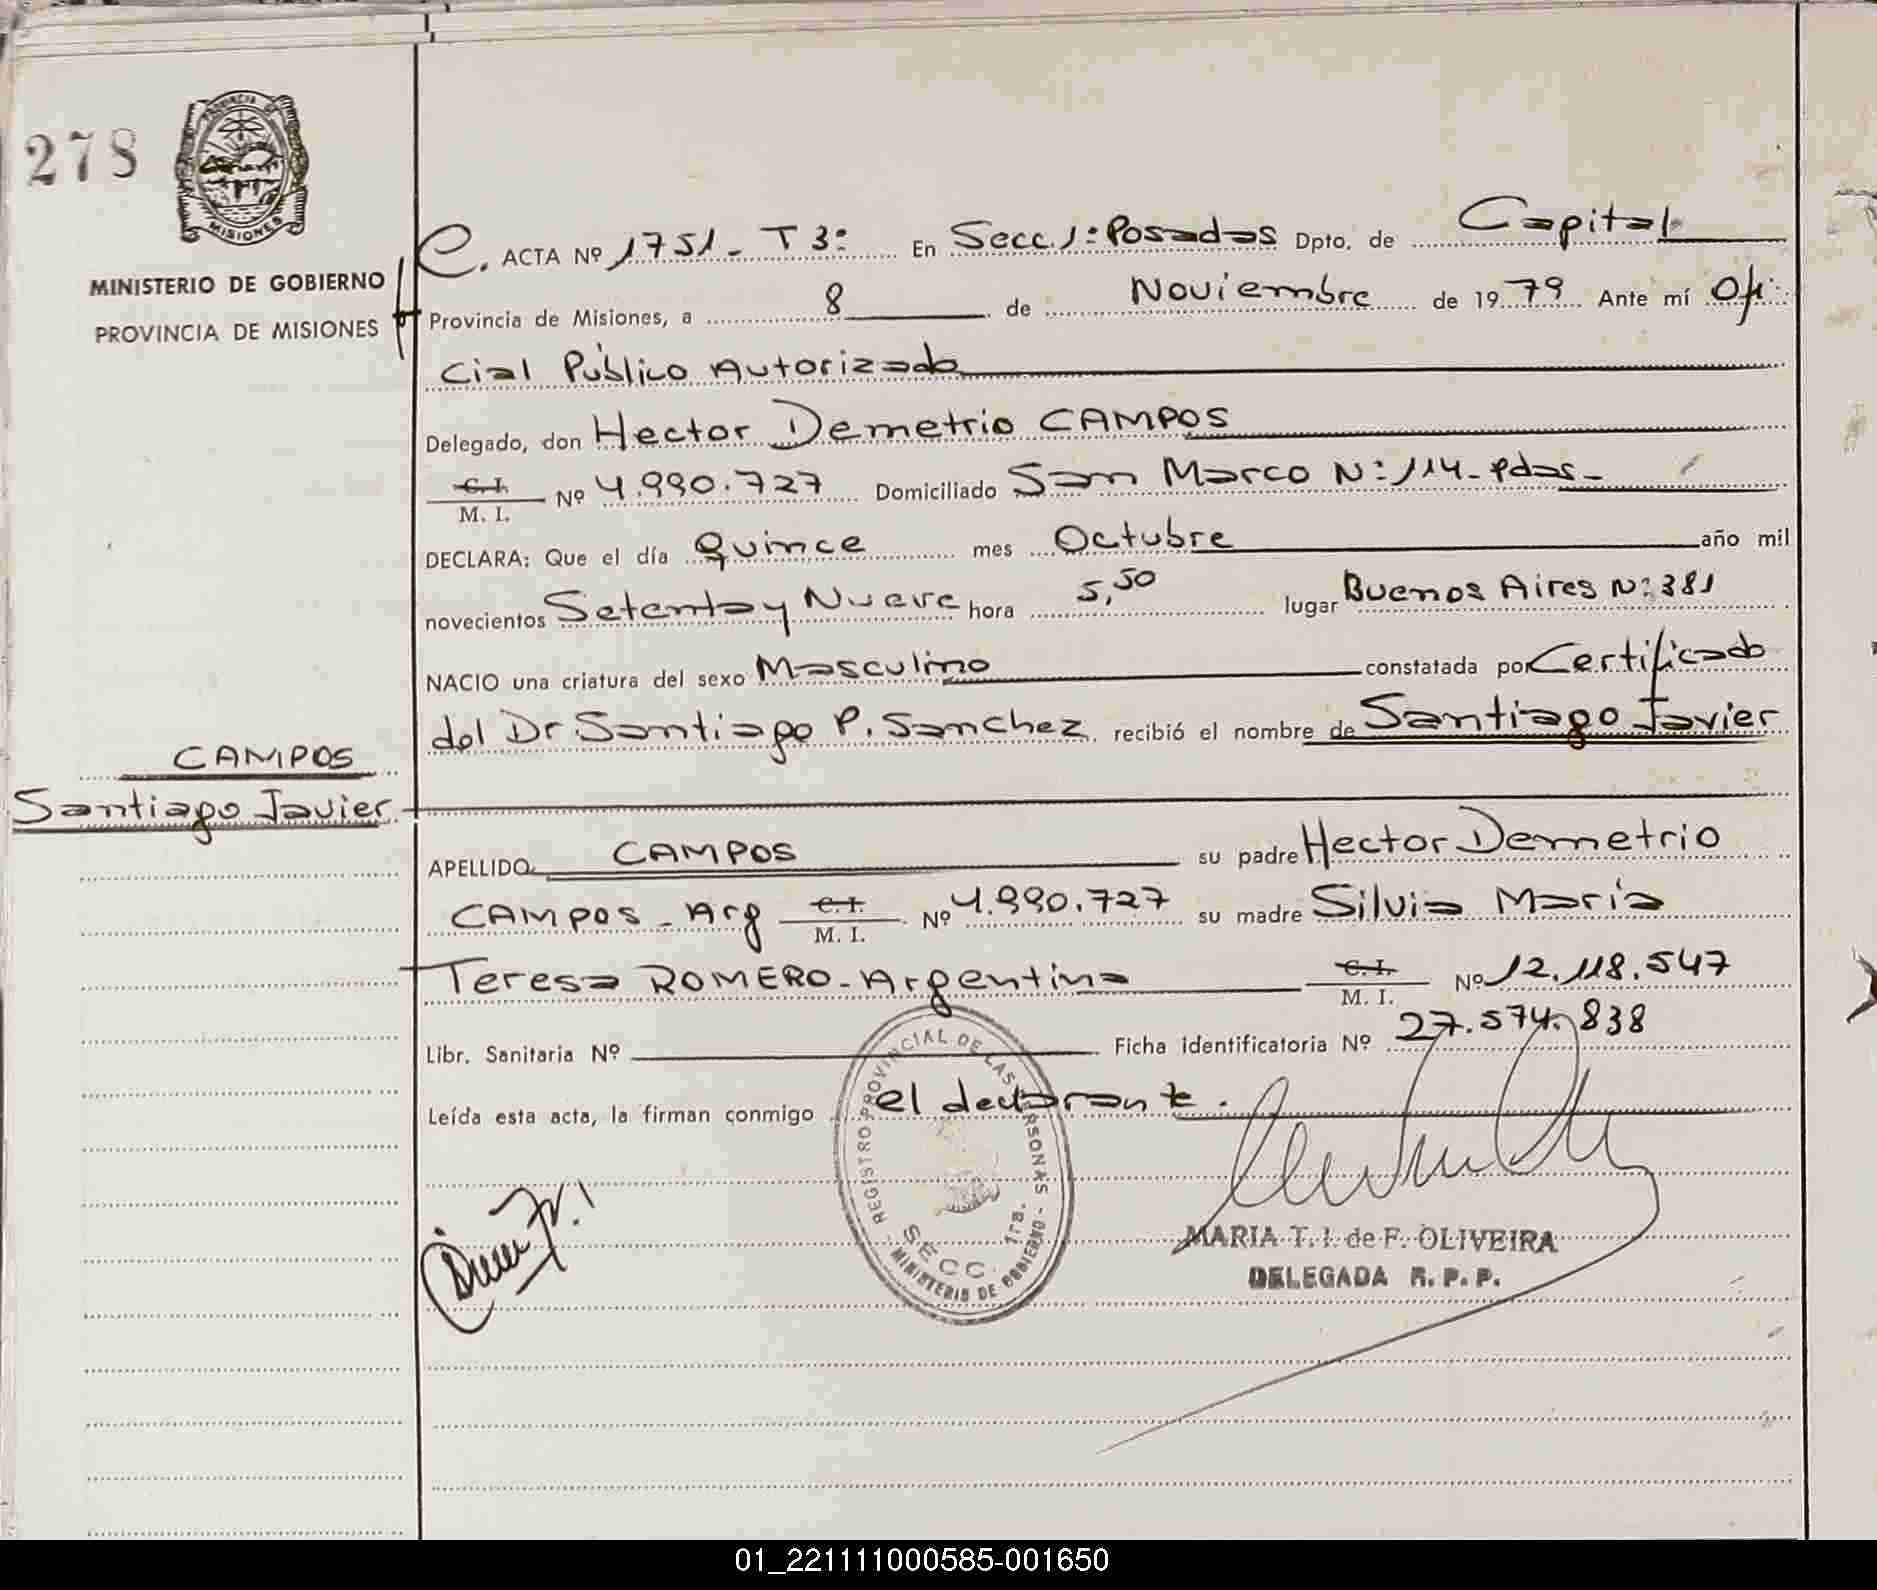 278
PROVINCIA DE
MISIONES
MINISTERIO DE GOBIERNO
PROVINCIA DE MISIONES
ACTA Nº 1751 - T 3º En Secc 1ª Posadas Dpto. de Capital
Provincia de Misiones, a 8 de Noviembre de 1979 Ante mí Ofi
cial Público Autorizado
Delegado, don Hector Demetrio CAMPOS
C. I. M. I. Nº 4.990.727 Domiciliado San Marco Nº 114 - Pdas -
DECLARA: Que el día Quince mes Octubre año mil
novecientos Setenta y Nueve hora 5,50 lugar Buenos Aires Nº 381
NACIO una criatura del sexo Masculino constatada por Certificado
del Dr. Santiago P. Sanchez recibió el nombre de Santiago Javier
CAMPOS
Santiago Javier
APELLIDO CAMPOS su padre Hector Demetrio
CAMPOS - Arg C. I. M. I. Nº 4.990.727 su madre Silvia María
Teresa ROMERO - Argentina C. I. M. I. Nº 12.118.547
Libr. Sanitaria Nº Ficha identificatoria Nº 27.574.838
Leída esta acta, la firman conmigo el declarante.
REGISTRO PROVINCIAL DE LAS PERSONAS - MINISTERIO DE GOBIERNO -
SECC. 1ra.
MARIA T. I. de F. OLIVEIRA
DELEGADA R. P. P.
01_221111000585-001650